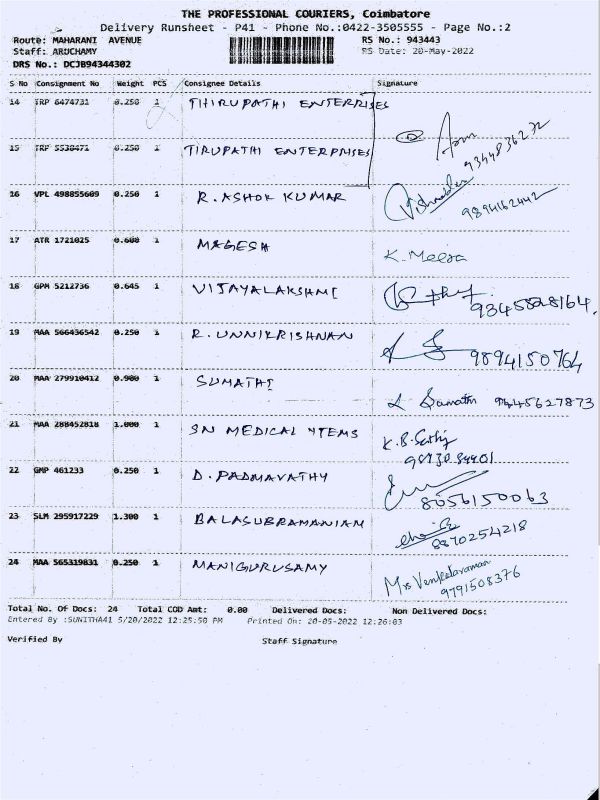 THE PROFESSIONAL COURIERS, Coimbatore
Delivery Runsheet - P41 - Phone No.:0422-3505555 - Page No.:2
Route: MAHARANI AVENUE RS No.: 943443
Staff: ARUCHAMY RS Date: 20-May-2022
DRS No.: DCJB94344302
S No Consignment No Weight PCS Consignee Details Signature
14 TRP 6474731 0.250 1 THIRUPATHI ENTERPRISES
9344836272
15 TRP 5538471 0.250 1 TIRUPATHI ENTERPRISES
16 VPL 498855609 0.250 1 R. ASHOK KUMAR
9894162442
17 ATR 1721025 0.600 1 MAGESH K. Meera
18 GPM 5212736 0.645 1 VIJAYALAKSHMI 9345828164.
19 MAA 566436542 0.250 1 R. UNNIKRISHNAN 9894150764
20 MAA 279910412 0.900 1 SUMATHI
9445627873
21 MAA 288452818 1.000 1 SN MEDICAL ITEMS K.B.
22 GMP 461233 0.250 1 D. PADMAVATHY
8056150063
23 SLM 295917229 1.300 1 BALASUBRAMANIAM
8870254218
24 MAA 565319831 0.250 1 MANIGURUSAMY Mrs Venketaraman
9791508376
Total No. Of Docs: 24 Total COD Amt: 0.00 Delivered Docs: Non Delivered Docs:
Entered By :SUNITHA41 5/20/2022 12:25:50 PM Printed On: 20-05-2022 12:26:03
Verified By Staff Signature